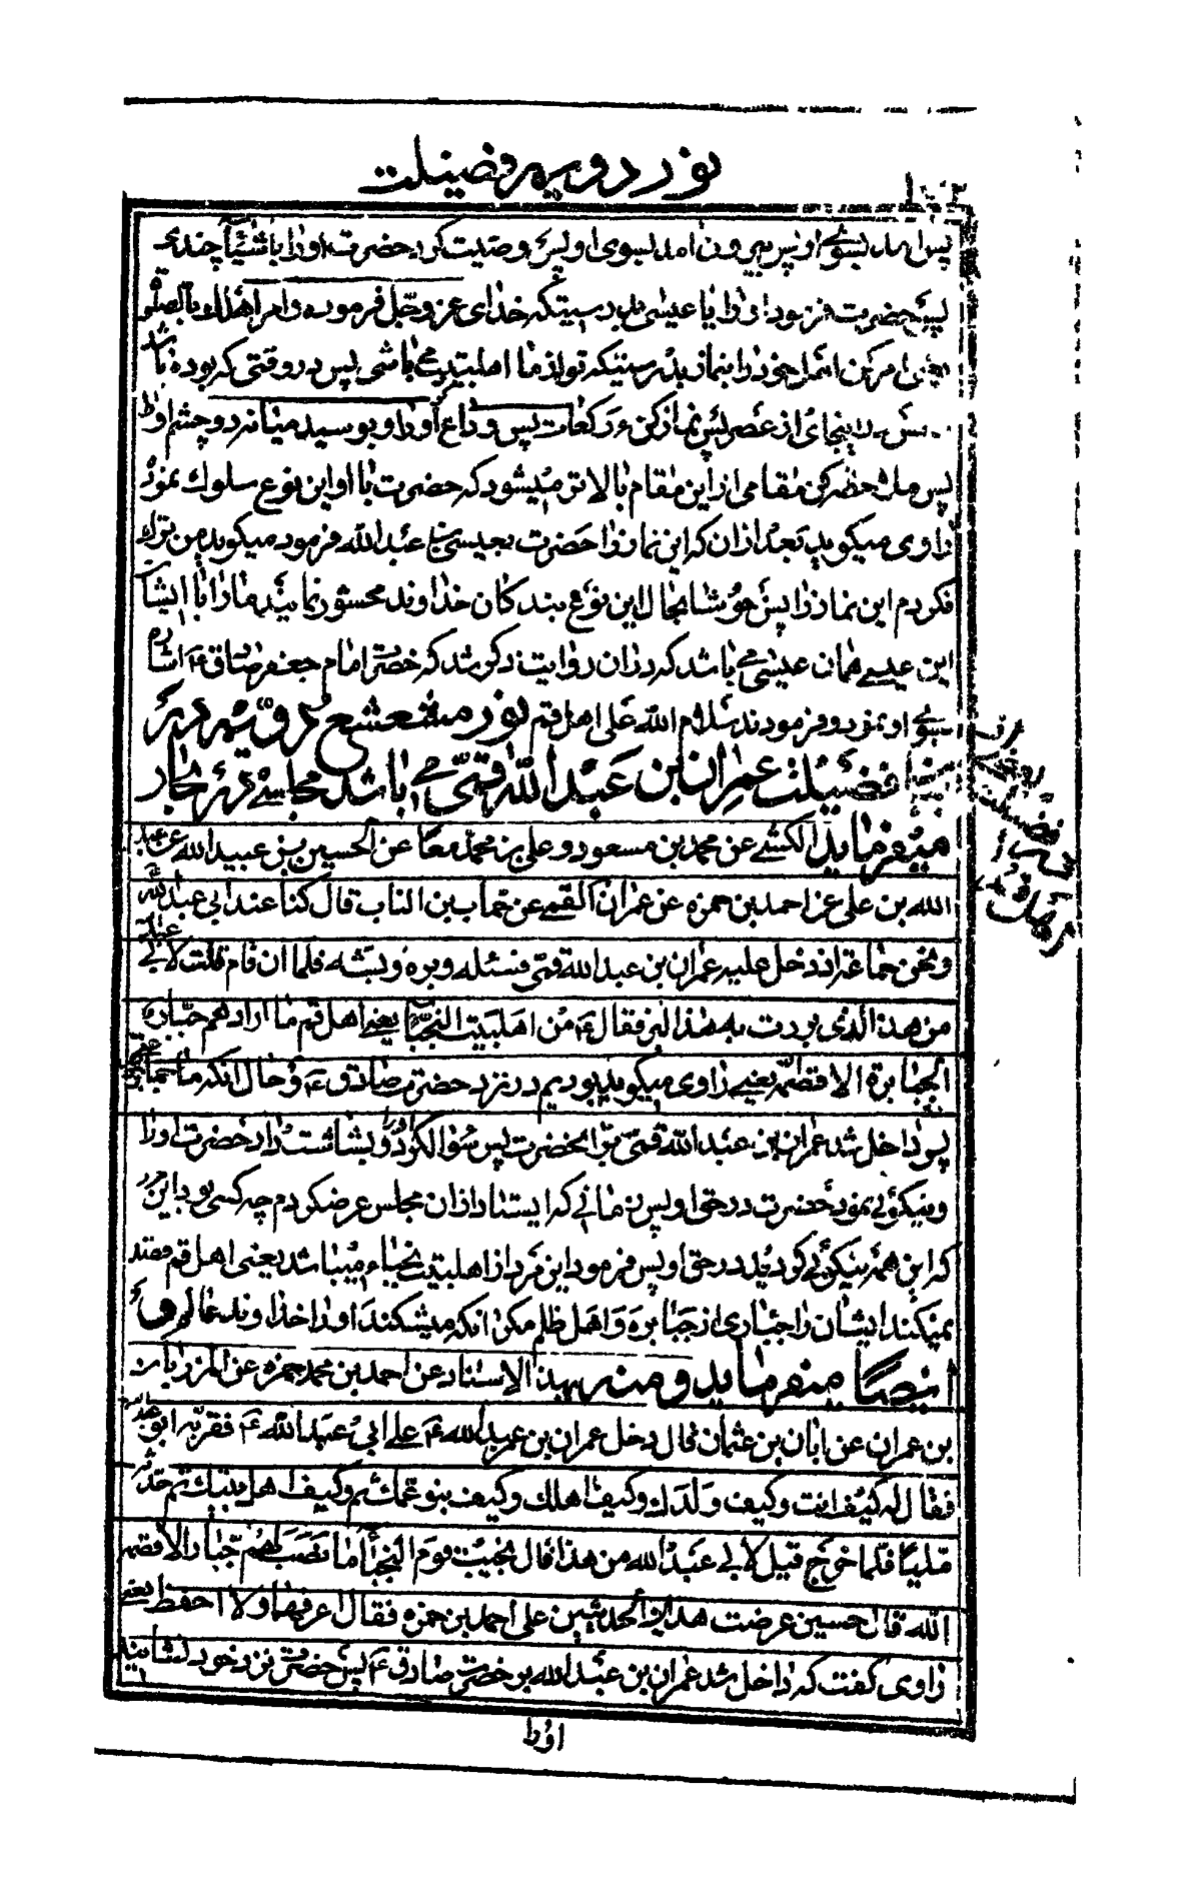 نور دویم در فضیلت
پس آمد بسوی او پس بیرون آمد بسوی او پس وصیت کرد حضرت او را باشیآء چندی
پس حضرت فرمود او را یا عیسی بدرستیکه خدای عز و جل فرموده وامر اهلك بالصلوة
یعنی امر کن اهل خود را بنماز بدرستیکه تو از ما اهلبیت می باشی پس در وقتی که بوده باشد
از عصر پس نماز کن رکعات پس وداع کرد او را و بوسید میانه دو چشم او را
پس ملاحظه کن مقامی از این مقام بالاتر میشود که حضرت با او این نوع سلوك نمود
راوی میکوید بعد از آن که این نماز را حضرت بعیسی بن عبدالله فرمود میکوید من ترك
نکردم این نماز را پس خوشا بحال این نوع بندکان خداوند محشور نماید ما را با ایشان
این عیسی همان عیسی می باشد که در آن روایت ذکر شد که حضرت امام جعفر صادق ع اشاره
بسوی او نمود و فرمودند سلام الله علی اهل قم نور مشعشع دویم در
فضیلت عمران بن عبد الله قمی می باشد مجلسی در بحار
میفرماید الکشی عن محمد بن مسعود و علی بن محمد معا عن الحسین بن عبیدالله عن عبد
الله بن علی عن احمد بن حمزه عن عمران القمی عن حماب بن الناب قال کنا عند ابی عبدالله
ونحن جماعة اذ دخل علیه عمران بن عبدالله قمی فسئله وبره وبشه فلما ان قام قلت لابی عبدالله
من هذا الذی بررت به هذا البر فقال ع من اهلبیت النجبآء یعنی اهل قم ما ارادهم جبار من
الجبابرة الا قصمه یعنی راوی میکوید بودیم در نزد حضرت صادق ع و حال آنکه ما جماعتی
بودیم داخل شد عمران بن عبدالله قمی بر آنحضرت پس سؤال کرد او را و بشاشت داد حضرت او را
ونیکوئی نمود حضرت در حق او پس زمانی که ایستاد از آن مجلس عرض کردم چه کسی بود این مرد
که این همه نیکوئی کردید در حق او پس فرمود این مرد از اهلبیت نجباء میباشد یعنی اهل قم قصد
نمیکند ایشان را جباری از جبابره و اهل ظلم مکر آنکه میشکند او را خداوند عالم و
ایضا میفرماید ومنه بهذا الاسناد عن احمد بن محمد حمزه عن المرزبان
بن عمران عن ابان بن عثمان قال دخل عمران بن عبدالله ع علی ابی عبدالله ع فقربه ابو عبدالله
فقال له کیف انت وکیف ولدك وکیف اهلك وکیف بنو عمك ثم وکیف اهل بیتك ثم حدثه
ملیا فلما خرج قیل لابی عبد الله من هذا قال نجیب قوم النجبآء ما نصب لهم جبار الا قصمه
الله قال حسین عرضت هذین الحدیثین علی احمد بن حمزه فقال اعرفهما ولا احفظ یعنی
راوی کفت که داخل شد عمران بن عبدالله بر حضرت صادق ع پس حضرت نزد خود نشانید
او را